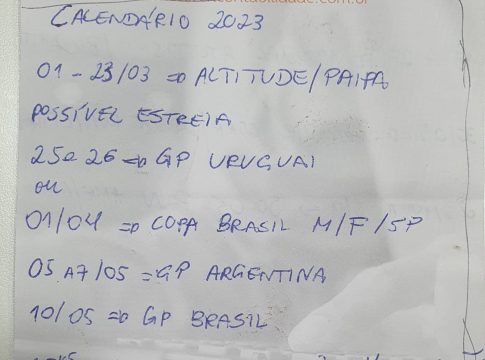 CALENDÁRIO 2023
01 - 23/03 => ALTITUDE/PAIPA
POSSÍVEL ESTREIA
25 e 26 => GP URUGUAI
ou
01/04 => COPA BRASIL M/F/SP
05 A 7/05 => GP ARGENTINA
10/05 => GP BRASIL